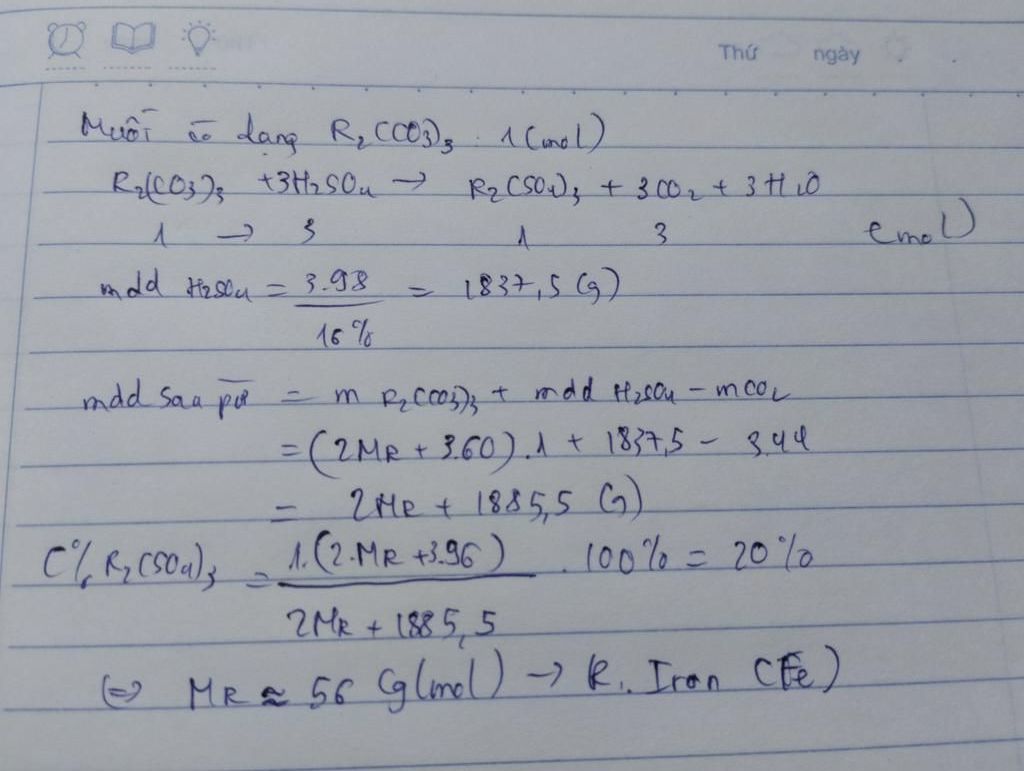 Thứ ngày
Muối có dạng R₂(CO3)₃ : 1 (mol)
R₂(CO3)₃ + 3H₂SO₄ → R₂(SO₄)₃ + 3CO₂ + 3H₂O
1 → 3 1 3 (mol)
mdd H₂SO₄ = 3.98 / 16% = 1837,5 (g)
mdd sau pứ = m R₂(CO3)₃ + mdd H₂SO₄ - mCO₂
= (2MR + 3.60).1 + 1837,5 - 3.44
= 2MR + 1885,5 (G)
C% R₂(SO₄)₃ = 1.(2.MR + 3.96) / 2MR + 1885,5 . 100% = 20%
(=) MR ≈ 56 (g/mol) → R: Iron (Fe)